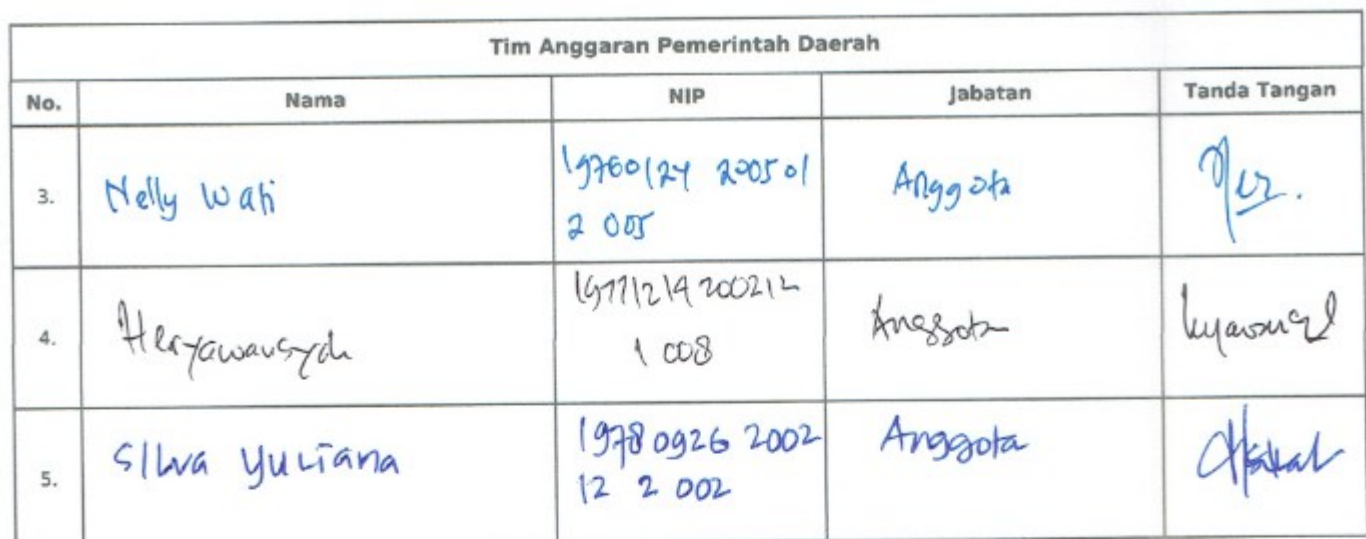 Tim Anggaran Pemerintah Daerah
No. Nama NIP Jabatan Tanda Tangan
3. Nelly Wati 19760124 200501 2 005 Anggota
4. Heryawansyah 19771214 200212 1 008 Anggota
5. Silva Yuliana 19780926 2002 12 2 002 Anggota